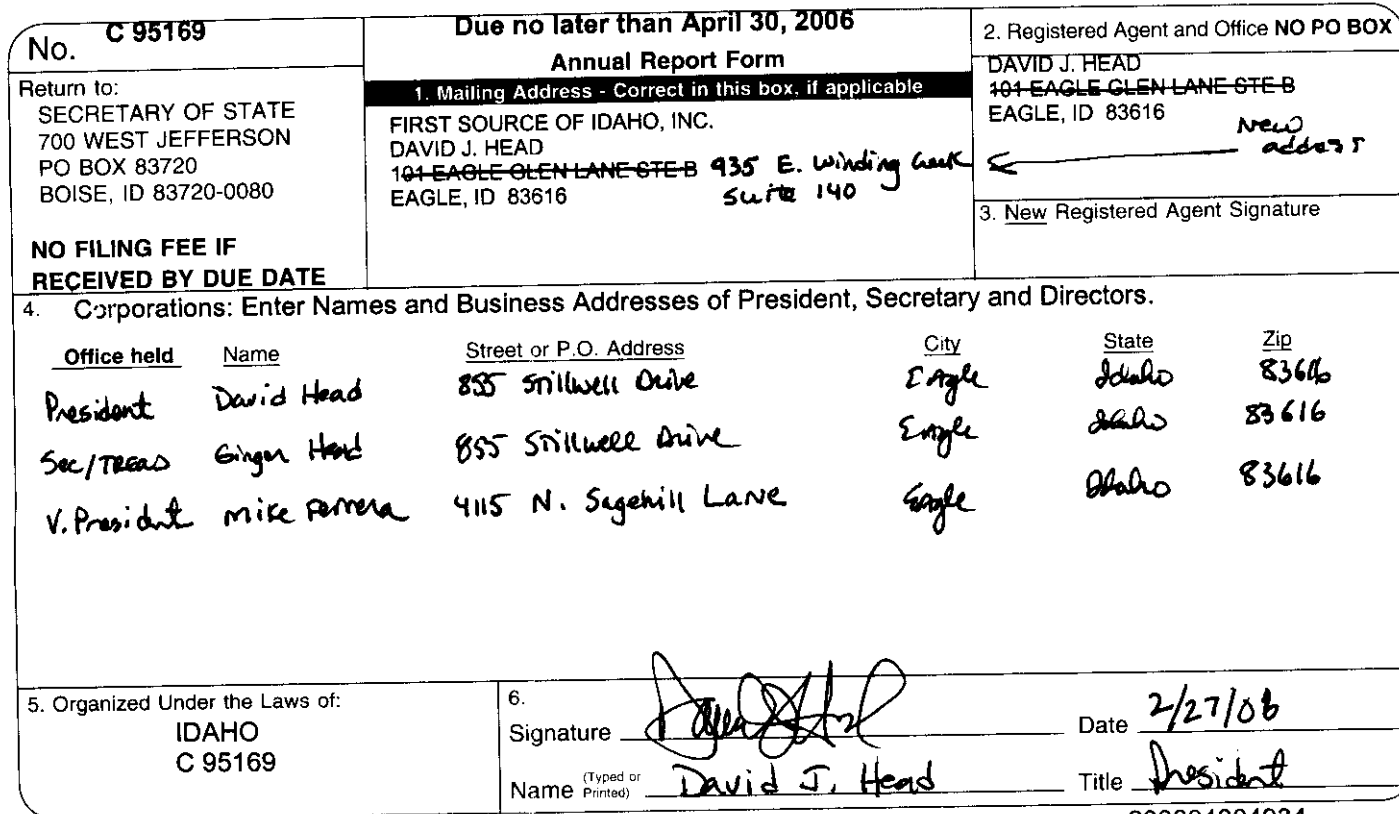 No. C 95169
Return to:
SECRETARY OF STATE
700 WEST JEFFERSON
PO BOX 83720
BOISE, ID 83720-0080
NO FILING FEE IF
RECEIVED BY DUE DATE
Due no later than April 30, 2006
Annual Report Form
1. Mailing Address - Correct in this box, if applicable
FIRST SOURCE OF IDAHO, INC.
DAVID J. HEAD
101 EAGLE GLEN LANE STE B 935 E. Winding Creek
EAGLE, ID 83616 Suite 140
2. Registered Agent and Office NO PO BOX
DAVID J. HEAD
101 EAGLE GLEN LANE STE B
EAGLE, ID 83616
New
address
3. New Registered Agent Signature
4. Corporations: Enter Names and Business Addresses of President, Secretary and Directors.
Office held Name Street or P.O. Address City State Zip
President David Head 855 Stillwell Drive Eagle Idaho 83616
Sec/TREAS Ginger Head 855 Stillwell Drive Eagle Idaho 83616
V. President Mike Ferrera 4115 N. Sagehill Lane Eagle Idaho 83616
5. Organized Under the Laws of:
IDAHO
C 95169
6.
Signature Date 2/27/06
Name (Typed or Printed) David J. Head Title President